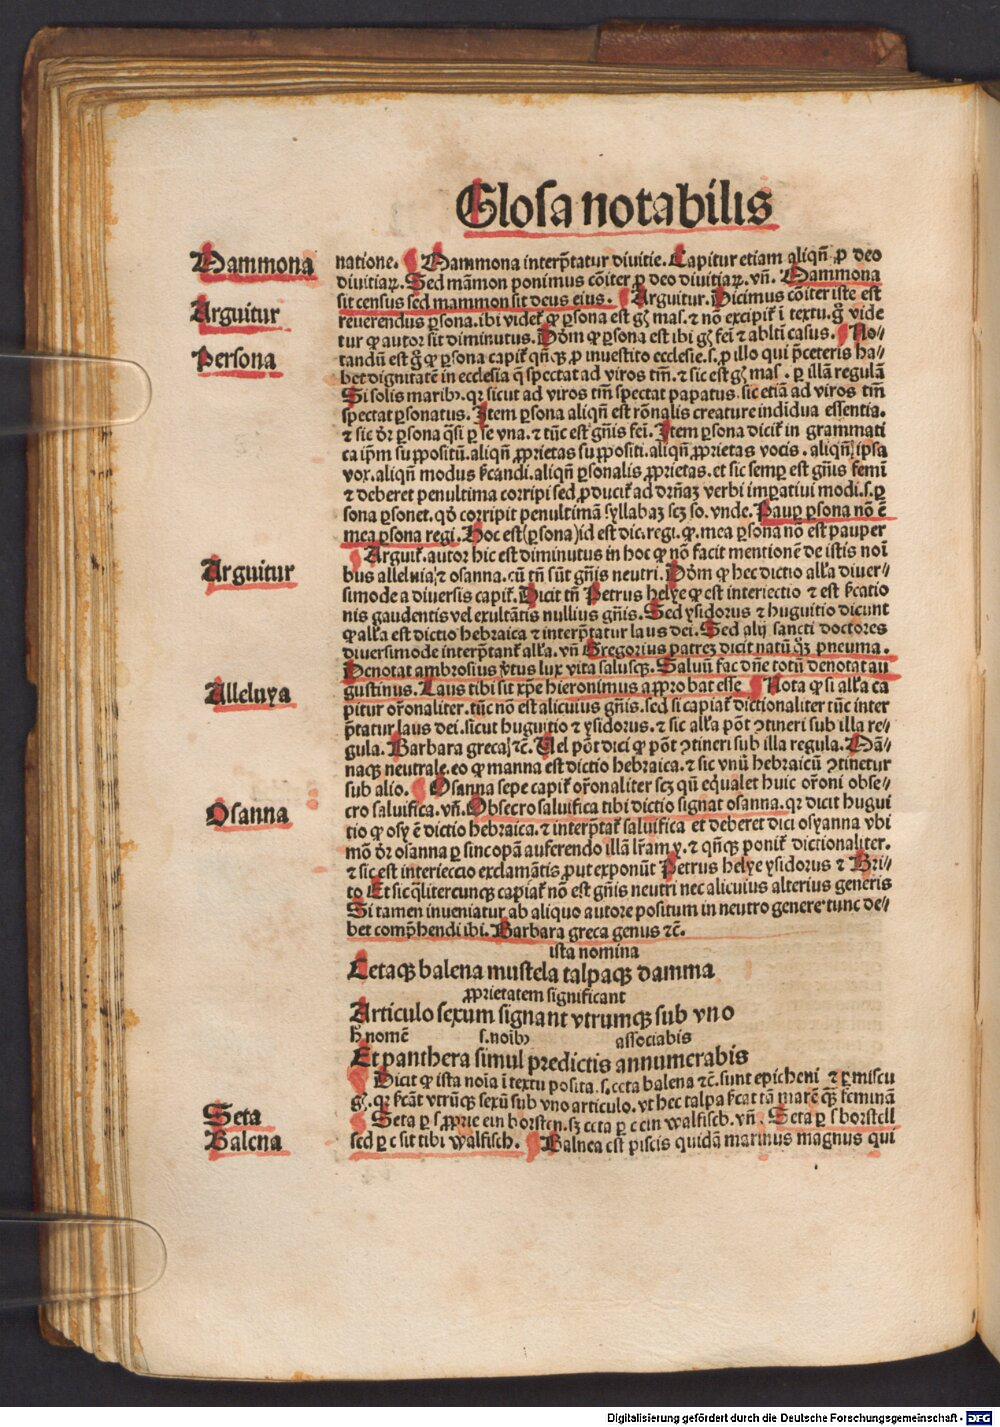 Glosa notabilis
Mammona
natione. Mammona interp̃tatur divitie. Capitur etiam aliqñ ꝓ deo
divitiaꝝ. Sed mãmon ponimus cõiter ꝓ deo divitiaꝝ. vñ. Mammona
sit census sed mammon sit deus eius. Arguitur. Dicimus cõiter iste est
Arguitur
reverendus ꝑsona. ibi videt̃ ꝙ ꝑsona est gñ mas. ⁊ nõ excipit̃ ĩ textu. g̃ vide
tur ꝙ autor sit diminutus. Dõm ꝙ ꝑsona est ibi gñ feĩ ⁊ ablti casus. No⸗
Persona
tandũ est g̃ ꝙ ꝑsona capit̃ qñꝫ ꝓ investito ecclesie. s. ꝓ illo qui p̃ceteris ha⸗
bet dignitatẽ in ecclesia q̃ spectat ad viros tm̃. ⁊ sic est gñ mas. ꝑ illã regulã
Si solis maribꝰ. qꝛ sicut ad viros tm̃ spectat papatus. sic etiã ad viros tm̃
spectat ꝑsonatus. Item ꝑsona aliqñ est rõnalis creature indidua essentia.
⁊ sic dr̃ ꝑsona q̃si ꝑ se vna. ⁊ tũc est gñis fei. Item ꝑsona dicit̃ in grammati
ca ip̃m suppositũ. aliqñ ꝓprietas suppositi. aliqñ ꝓprietas vocis. aliqñ ipsa
vox. aliqñ modus sĩcandi. aliqñ ꝑsonalis ꝓprietas. et sic semꝑ est gñis femĩ
⁊ deberet penultima corripi sed ꝓducit̃ ad dr̃ñaꝫ verbi imꝑativi modi. s. ꝑ
sona ꝑsonet. qđ corripit penultimã syllabaꝫ scꝫ so. vnde. Pauꝑ ꝑsona nõ ẽ
mea ꝑsona regi. Hoc est (ꝑsona) id est dic. regi. ꝙ. mea ꝑsona nõ est pauper
Arguit̃. autor hic est diminutus in hoc ꝙ nõ facit mentionẽ de istis noĩ
Arguitur
bus alleluia ⁊ osanna. cũ tñ sũt gñis neutri. Dõm ꝙ hec dictio alľa diver⸗
simode a diversis capit̃. Dicit tñ Petrus helye ꝙ est interiectio ⁊ est sĩcatio
nis gaudentis vel exultãtis nullius gñis. Sed ysidorus ⁊ huguitio dicunt
ꝙ alľa est dictio hebraica ⁊ interp̃tatur laus dei. Sed alij sancti doctores
diversimode interp̃tant̃ alľa. vñ Gregorius patreꝫ dicit natũ qꝫ pneuma.
Denotat ambrosius v̓tus lux vita salusqꝫ. Salvũ fac dñe totũ denotat au
Alleluya
gustinus. Laus tibi sit xp̃e hieronimus approbat esse Nota ꝙ si alľa ca
pitur or̃onaliter. tũc nõ est alicuius gñis. sed si capiat̃ dictionaliter tũc inter
p̃tatur laus dei. sicut huguitio ⁊ ysidorus. ⁊ sic alľa põt ↄtineri sub illa re⸗
gula. Barbara greca ⁊c̃. Uel põt dici ꝙ põt ↄtineri sub illa regula. Mã⸗
naqꝫ neutrale. eo ꝙ manna est dictio hebraica. ⁊ sic vnũ hebraicũ ↄtinetur
sub alio. Osanna sepe capit̃ or̃onaliter scꝫ qñ eq̃valet huic or̃oni obse⸗
Osanna
cro salvifica. vñ. Obsecro salvifica tibi dictio signat osanna. qꝛ dicit hugui
tio ꝙ osy ẽ dictio hebraica. ⁊ interp̃tat̃ salvifica et deberet dici osyanna vbi
mõ dr̃ osanna ꝑ sincopã auferendo illã lr̃am y. ⁊ qñqꝫ ponit̃ dictionaliter.
⁊ sic est interieccio exclamãtis prout exponũt Petrus helye ysidorus ⁊ Bri⸗
to Et sic q̃litercunqꝫ capiat̃ nõ est gñis neutri nec alicuius alterius generis
Si tamen inveniatur ab aliquo autore positum in neutro genere tunc de⸗
bet comp̃hendi ibi. Barbara greca genus ⁊c̃.
ista nomina
Cetaqꝫ balena mustela talpaqꝫ damma
ꝓprietatem significant
Articulo sexum signant vtrumqꝫ sub vno
h̃ nomẽ s. noĩbꝰ associabis
Et panthera simul predictis annumerabis
Dicit ꝙ ista noĩa ĩ textu posita. s. ceta balena ⁊c̃. sunt epicheni ⁊ ꝓmiscu
gñ. qꝛ sĩcãt vtrũqꝫ sexũ sub vno articulo. vt hec talpa sĩcat tã marẽ qꝫ feminã
Seta
Seta ꝑ s ꝓprie ein borsten. sꝫ ceta ꝑ c ein walfisch. vñ. Seta ꝑ s borstell
Balena
sed ꝑ c sit tibi walfisch. Balnea est piscis quidã marinus magnus qui
Digitalisierung gefördert durch die Deutsche Forschungsgemeinschaft - DFG